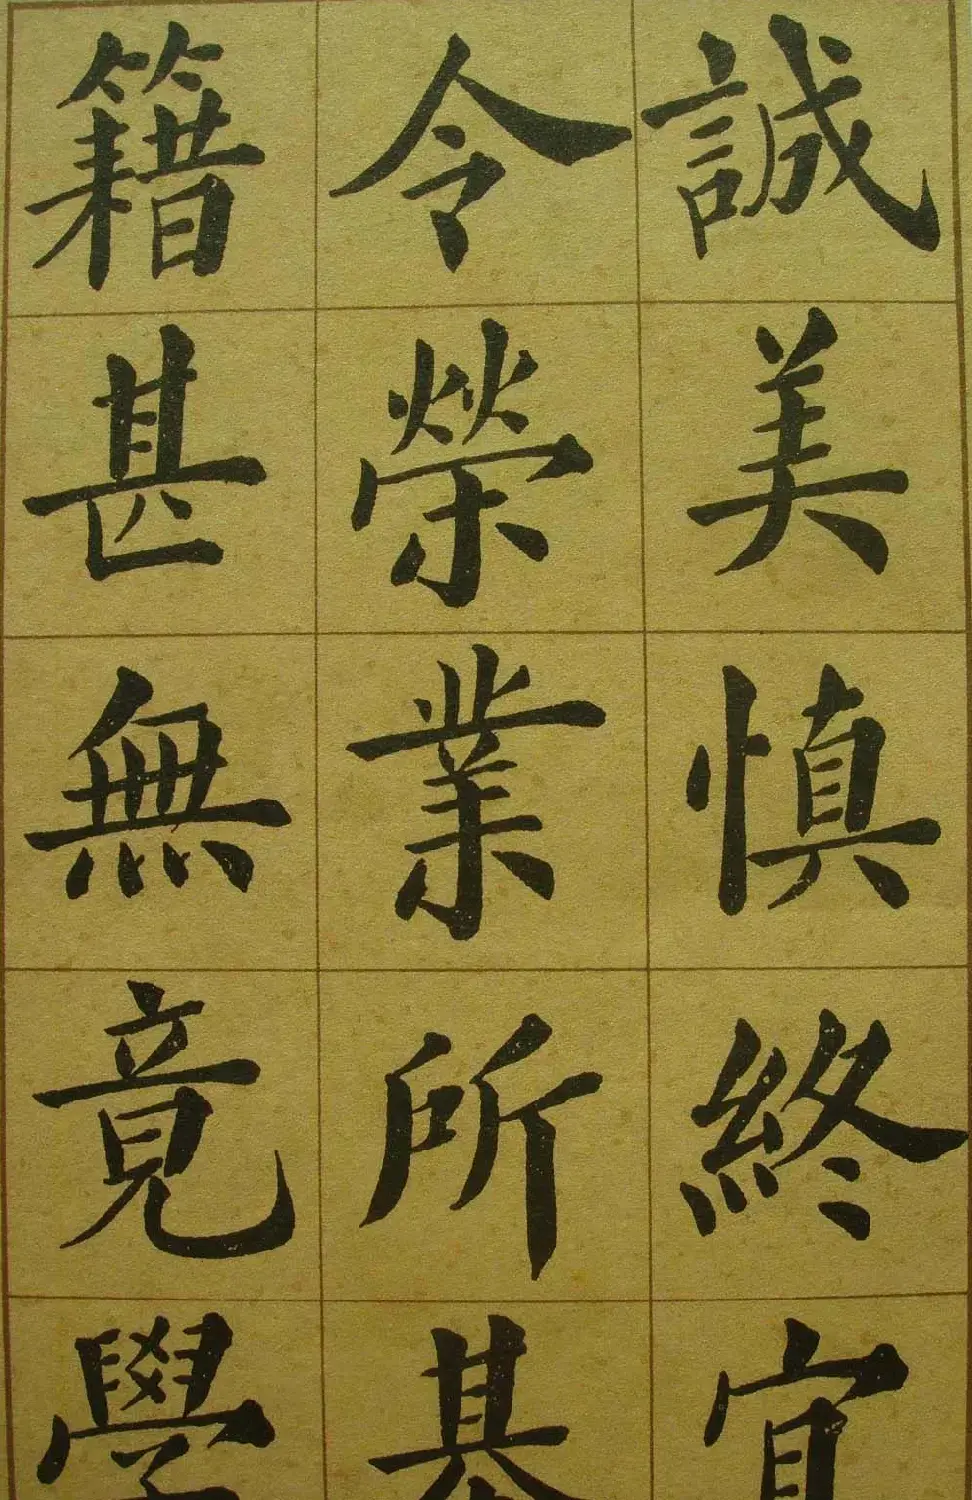 誠美慎終宜
令榮業所基
籍甚無竟學